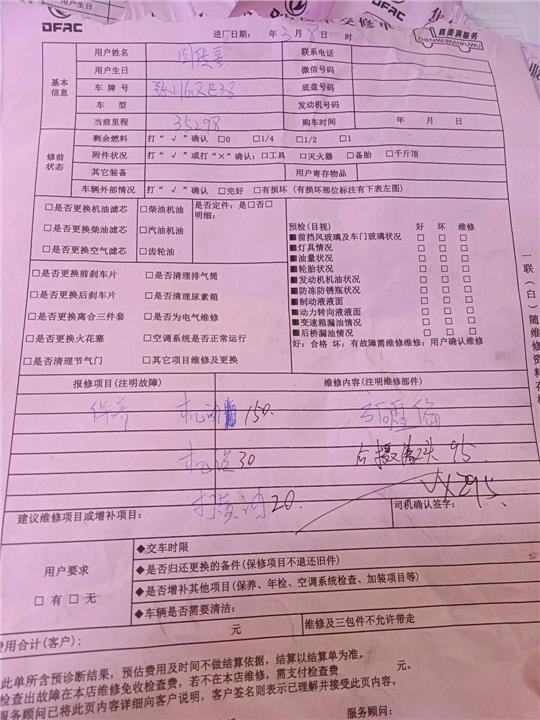 DFAC
进厂日期: 年3月8日 时
真美满服务
ZHENMEIMANFUWU
基本信息
用户姓名 联系电话
用户生日 微信号码
车牌号 底盘号码
车型 发动机号码
当前里程 35298 购车时间 年 月 日
修前状态
剩余燃料 打“√”确认 □0 □1/4 □1/2 □1
附件状况 打“√”或打“×”确认:□工具 □灭火器 □备胎 □千斤顶
其它装备 用户寄存物品
车辆外部情况 打“√”确认 □完好 □有损坏(有损坏部位标注有下表左图)
□是否更换机油滤芯 □柴油机油 是否定件:是□否□
明细:
□是否更换柴油滤芯 □汽油机油
□是否更换空气滤芯 □齿轮油
预检(目视) 好 坏 维修
■前挡风玻璃及车门玻璃状况 □ □ □
■灯具情况 □ □ □
■油量状况 □ □ □
■轮胎状况 □ □ □
■发动机机油状况 □ □ □
■防冻防锈瓶状况 □ □ □
■制动液液面 □ □ □
■动力转向液液面 □ □ □
■变速箱漏油情况 □ □ □
■后桥漏油情况 □ □ □
好:合格 坏:有故障需维修维修:用户确认维修
□是否更换前刹车片 □是否清理排气筒
□是否更换后刹车片 □是否清理尿素箱
□是否更换离合三件套 □是否为电气维修
□是否更换火花塞 □空调系统是否正常运行
□是否清理节气门 □其它项目维修及更换
一联(白)随维修资料存档
报修项目(注明故障) 维修内容(注明维修部件)
保养 150
30 后摄像头 95
20 295
建议维修项目或增补项目: 司机确认签字:
用户要求
□有 □无
◆交车时限
◆是否归还更换的备件(保修项目不退还旧件)
◆是否增补其他项目(保养、年检、空调系统检查、加装项目等)
◆车辆是否需要清洁:
元 维修及三包件不允许带走
费用合计(客户):
此单所含预诊断结果,预估费用及时间不做结算依据,结算以结算单为准。
检查出故障在本店维修免收检查费,若不在本店维修,需支付检查费 元。
服务顾问已将此页内容详细向客户说明,客户签名则表示已理解并接受此页内容。
服务顾问: